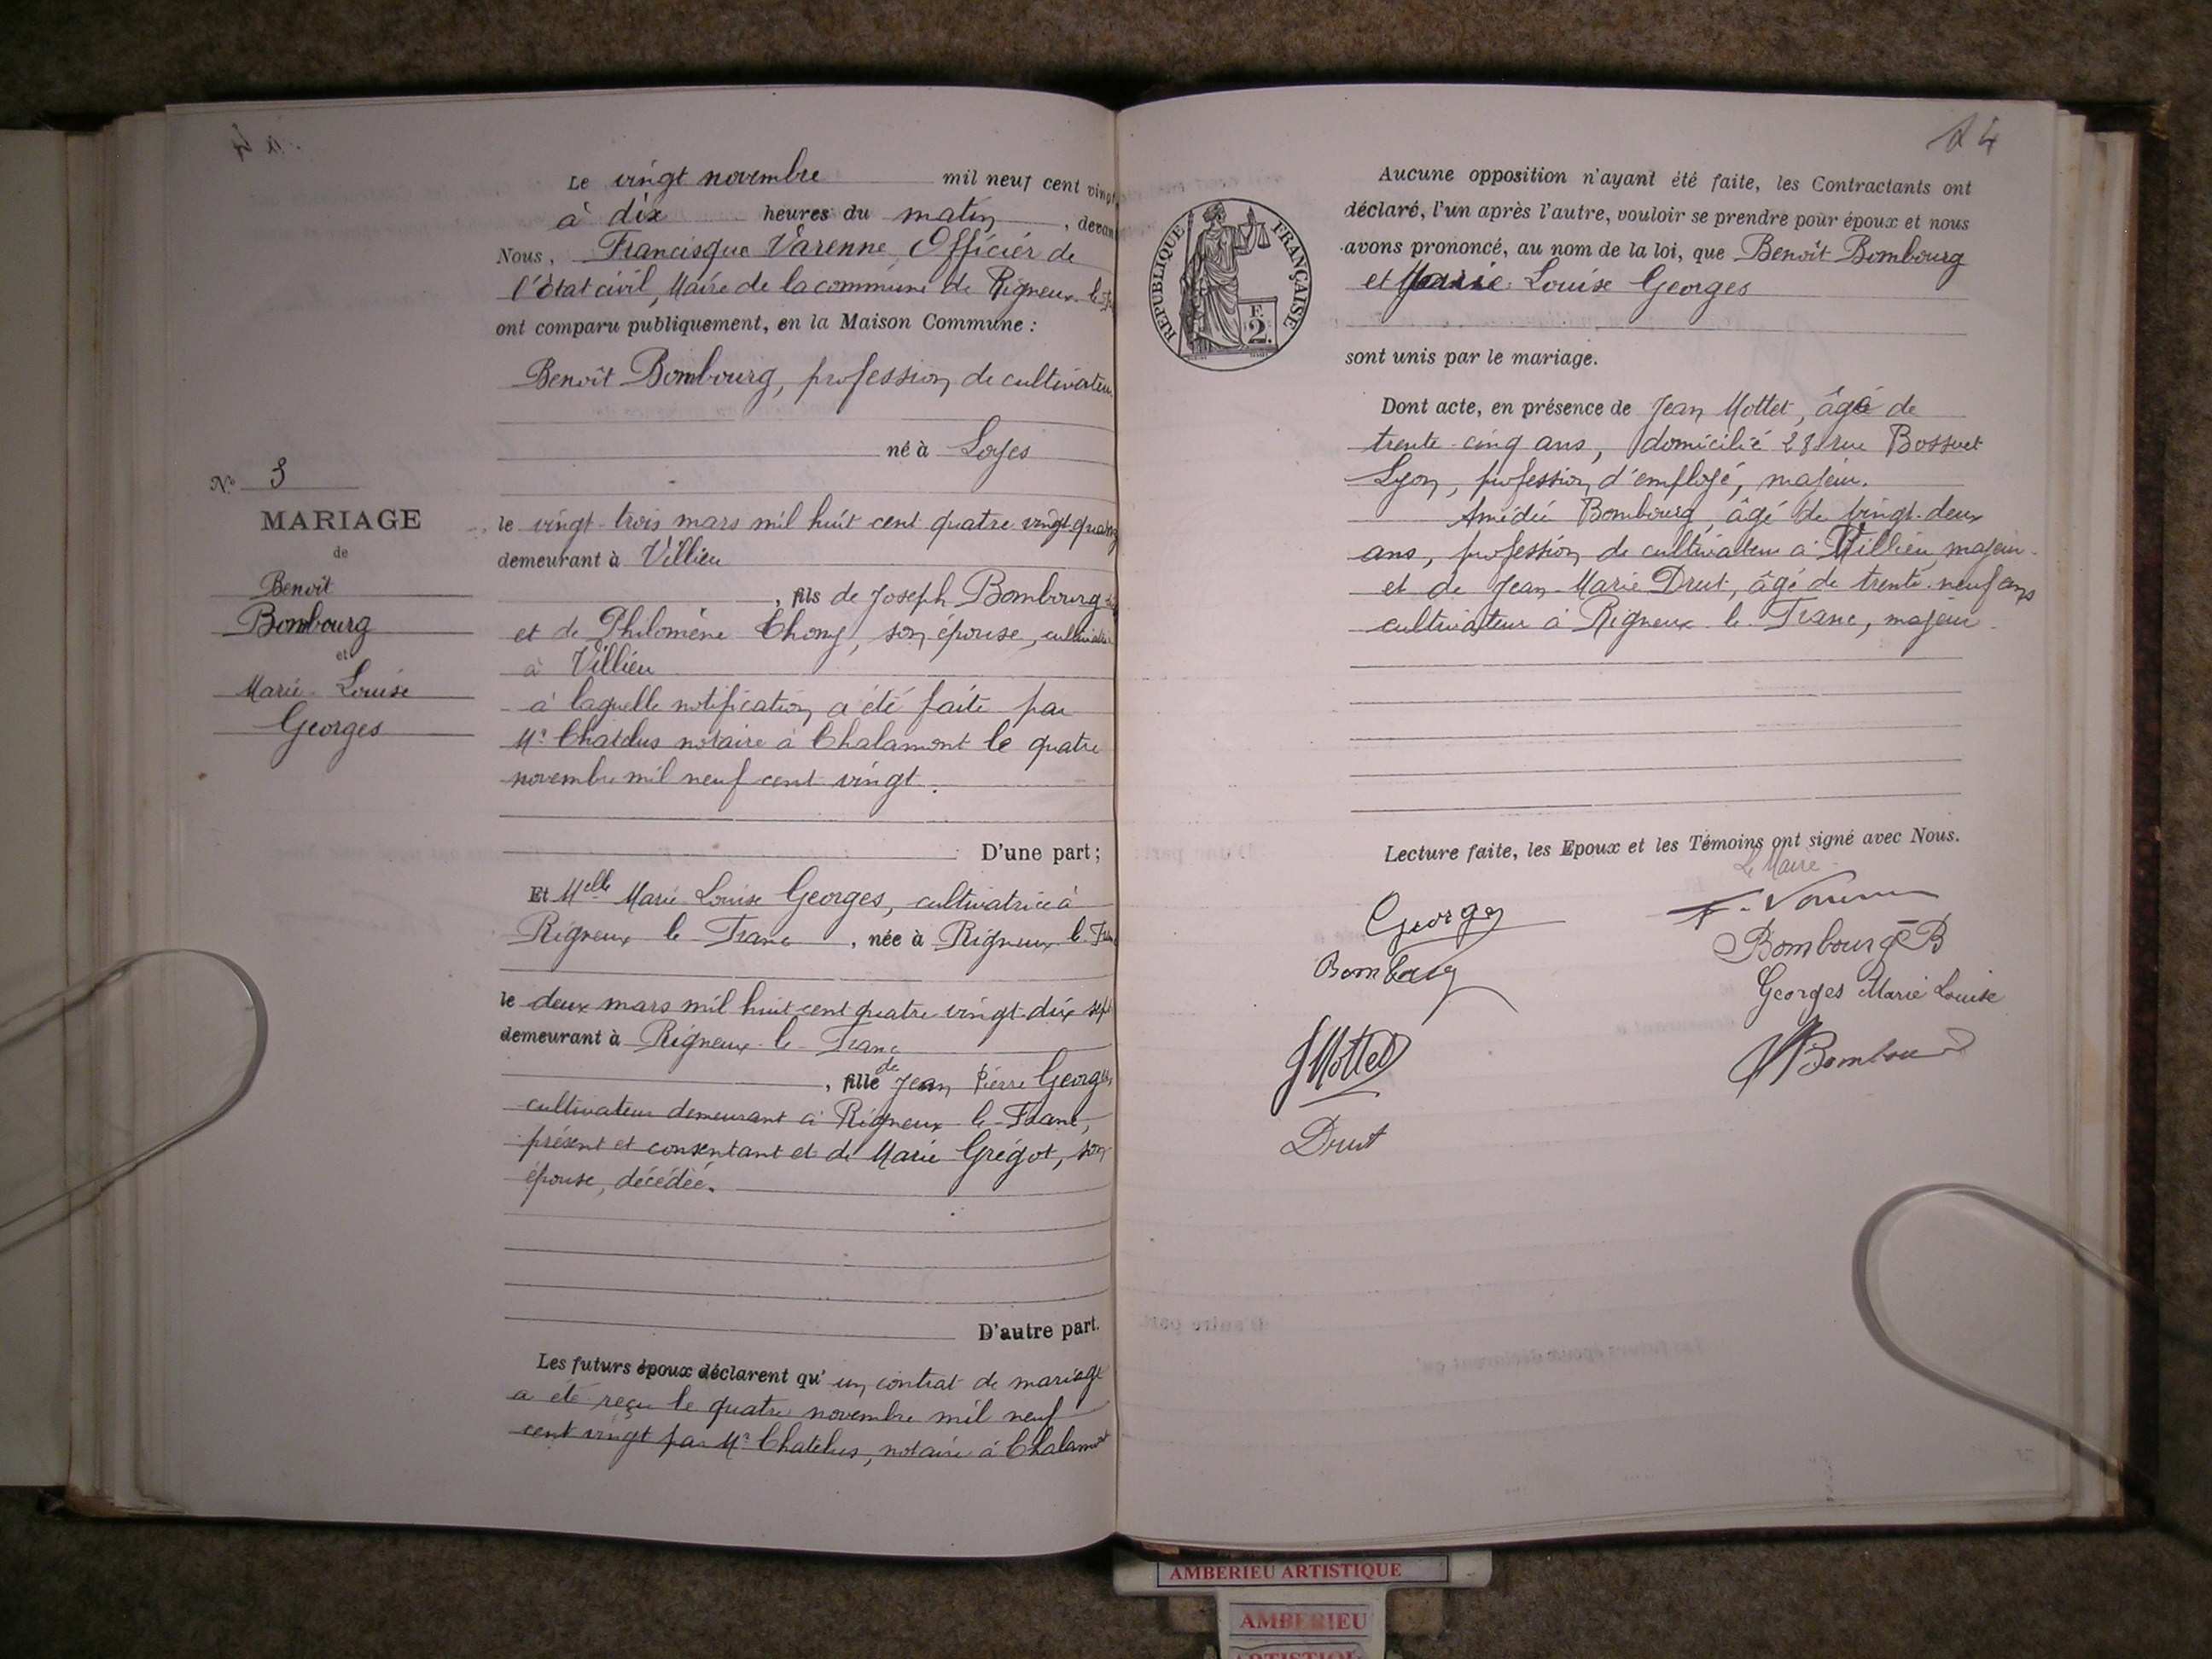 Le vingt novembre mil neuf cent vingt
à dix heures du matin, devan
Nous, Francisque Varenne Officier de
l'état civil, Maire de la commune de Rigneux le
ont comparu publiquement, en la Maison Commune :
Benoît Bombourg, profession de cultivateur
né à Loyes
le vingt-trois mars mil huit cent quatre vingt
demeurant à Villieu
, fils de Joseph Bombourg
et de Philomène Chony, son épouse,
à Villieu
à laquelle notification a été faite par
Me Chatelus notaire à Chalamont le quatre
novembre mil neuf cent vingt.
D'une part ;
Et Melle Marie Louise Georges, cultivatrice à
Rigneux le Franc, née à Rigneux le
le deux mars mil huit cent quatre vingt-dix sept
demeurant à Rigneux-le-Franc
, fille de Jean Pierre Georges,
cultivateur demeurant à Rigneux-le-Franc,
présent et consentant et de Marie Grégot, son
épouse, décédée.
D'autre part.
Les futurs époux déclarent qu'un contrat de mariage
a été reçu le quatre novembre mil neuf
cent vingt par Me Chatelus, notaire à Chalamont
No 3
MARIAGE
de
Benoît
Bombourg
et
Marie-Louise
Georges
4
REPUBLIQUE FRANÇAISE
F.
2.
Aucune opposition n'ayant été faite, les Contractants ont
déclaré, l'un après l'autre, vouloir se prendre pour époux et nous
avons prononcé, au nom de la loi, que Benoît Bombourg
et Marie Louise Georges
sont unis par le mariage.
Dont acte, en présence de Jean Mottet, âgé de
trente-cinq ans, domicilié 28 rue Bossuet
Lyon, profession d'employé, majeur.
Amédée Bombourg, âgé de vingt-deux
ans, profession de cultivateur à Villieu, majeur
et de Jean-Marie Drut, âgé de trente-neuf ans
cultivateur à Rigneux le Franc, majeur
Lecture faite, les Epoux et les Témoins ont signé avec Nous.
Le Maire
Georges
F. Varenne
Bombourg
Bombourg B
Georges Marie Louise
J Mottet
Drut
AMBERIEU ARTISTIQUE
AMBERIEU
ARTISTIQUE